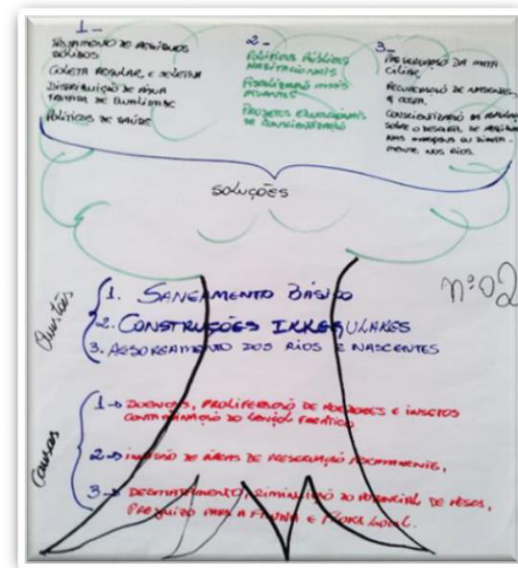 1-
TRATAMENTO DE RESÍDUOS
SÓLIDOS
COLETA REGULAR, E SELETIVA
DISTRIBUIÇÃO DE ÁGUA
TRATADA DE QUALIDADE
POLÍTICAS DE SAÚDE
2-
POLÍTICAS PÚBLICAS
HABITACIONAIS
FISCALIZAÇÃO MAIS
ATUANTES
PROJETOS EDUCACIONAIS
DE CONSCIENTIZAÇÃO
3-
PRESERVAÇÃO DA MATA
CILIAR.
DE NASCENTES,
CONSCIENTIZAÇÃO DA POPULAÇÃO
SOBRE O DESCARTE DE RESÍDUOS
NAS MARGENS OU DIRETA-
MENTE NOS RIOS.
SOLUÇÕES
nº 02
Questões
1. SANEAMENTO BÁSICO
2. CONSTRUÇÕES IRREGULARES
3. ASSOREAMENTO DOS RIOS E NASCENTES
Causas
1→ DOENÇAS, PROLIFERAÇÃO DE ROEDORES E INSETOS
CONTAMINAÇÃO DO LENÇOL FREÁTICO
2→ INVASÃO DE ÁREAS DE PRESERVAÇÃO PERMANENTE,
3→ DESMATAMENTO, DIMINUIÇÃO DO POTENCIAL DE PEIXES,
PREJUÍZO PARA A FAUNA E FLORA LOCAL.